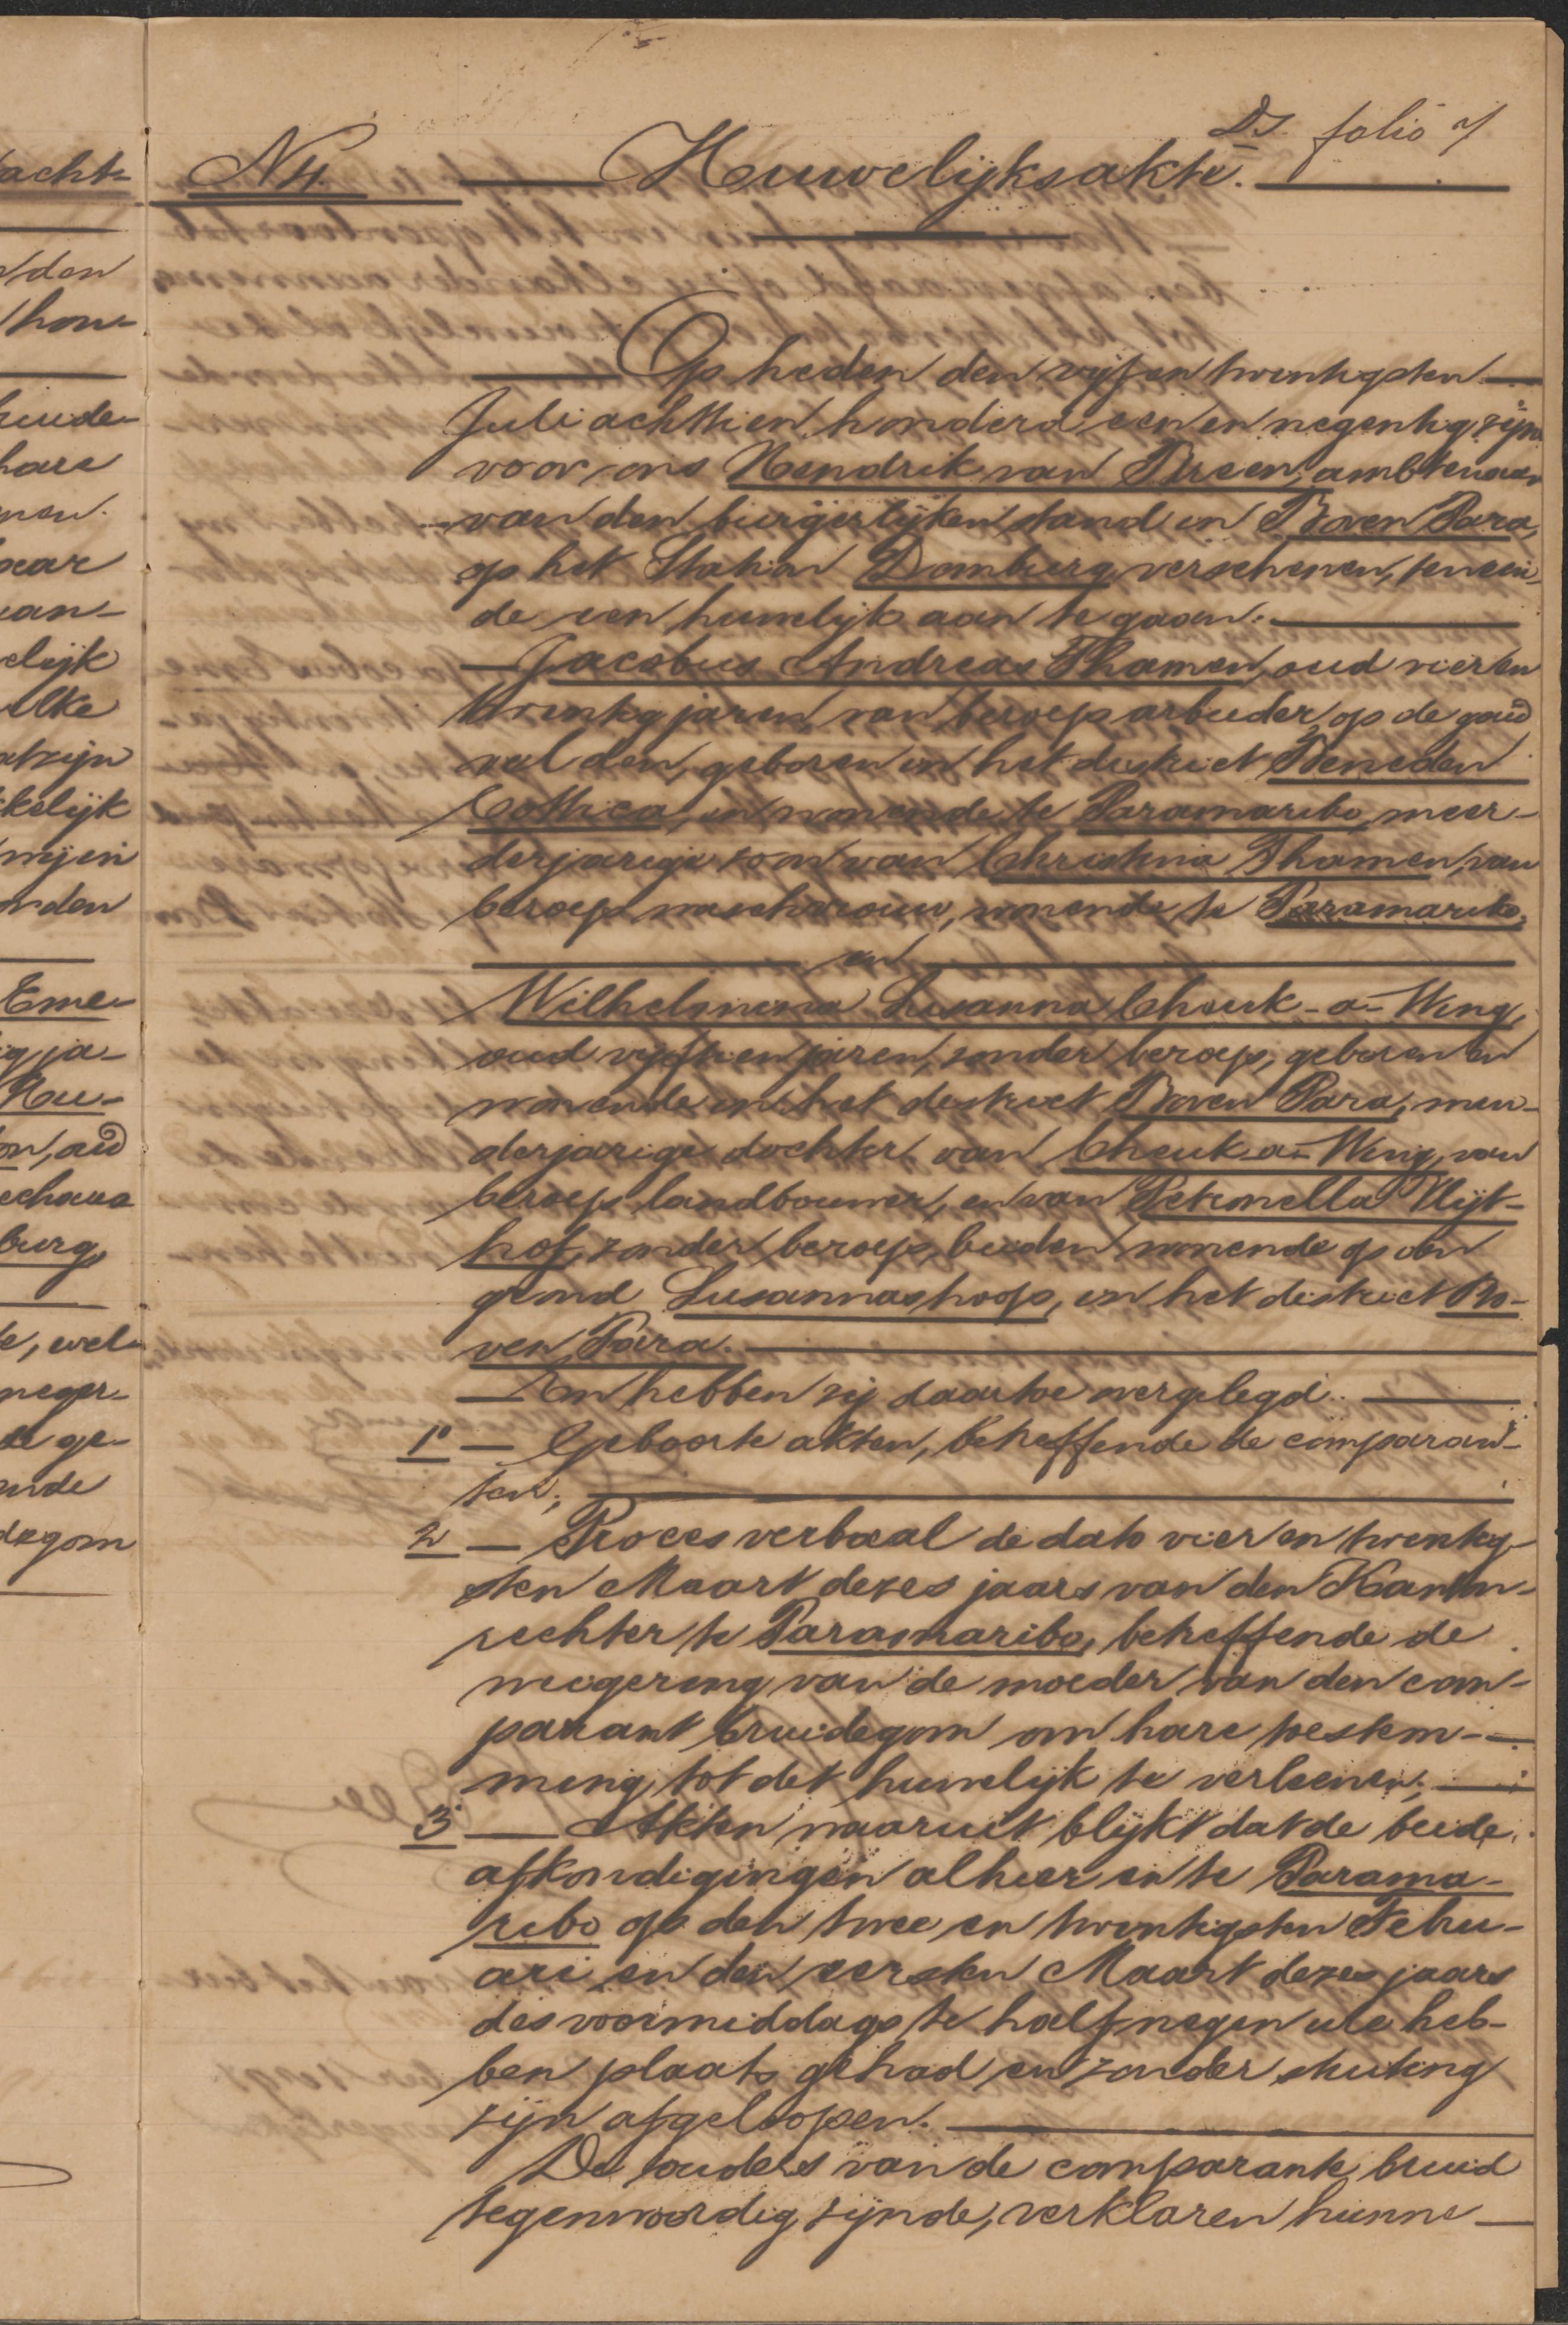 Ds. folio 7
N 4. Huwelijksakte.
Op heden den vijf en twintigsten
Juli achttien honderd een en negentig, zijn
voor ons Hendrik van Breen, ambtenaar
van den burgerlijken stand in Boven Para,
op het Station Domburg verschenen, ten ein-
de een huwelijk aan te gaan.
Jacobus Andreas Thamen, oud vier en
twintig jaren, van beroep arbeider op de goud
velden, geboren in het district Beneden
Cottica, en wonende te Paramaribo, meer-
derjarige zoon van Christina Thamen, van
beroep waschvrouw, wonende te Paramaribo,
en
Wilhelmina Susanna Cheuk-a-Wing,
oud vijftien jaren, zonder beroep, geboren en
wonende in het district Boven Para, min-
derjarige dochter van Cheuk-a-Wing, van
beroep landbouwer, en van Petronella Vlijt-
hof, zonder beroep, beiden wonende op den
grond Susannashoop, in het district Bo-
ven Para.
En hebben zij daartoe overgelegd.
1º Geboorte akten, betreffende de comparan-
ten;
2 Proces verbaal de dato vier en twintig-
sten Maart dezes jaars van den Kanton-
rechter te Paramaribo, betreffende de
weigering van de moeder van den com-
parant bruidegom om hare toestem-
ming tot dit huwelijk te verleenen;
3 Akten waaruit blijkt dat de beide
afkondigingen alhier en te Parama-
ribo op den twee en twintigsten Febru-
ari en den eersten Maart dezes jaars
des voormiddags te half negen ure heb-
ben plaats gehad en zonder stuiting
zijn afgeloopen.
De ouders van de comparante bruid
tegenwoordig zijnde, verklaren hunne
acht-
den
hon-
hare
nen.
aar
aan-
elijk
elke
kelijk
mijn
nden
Eme-
ig ja-
Hou-
on, oud
burg,
e, wel-
neger-
de ge-
ende
degom